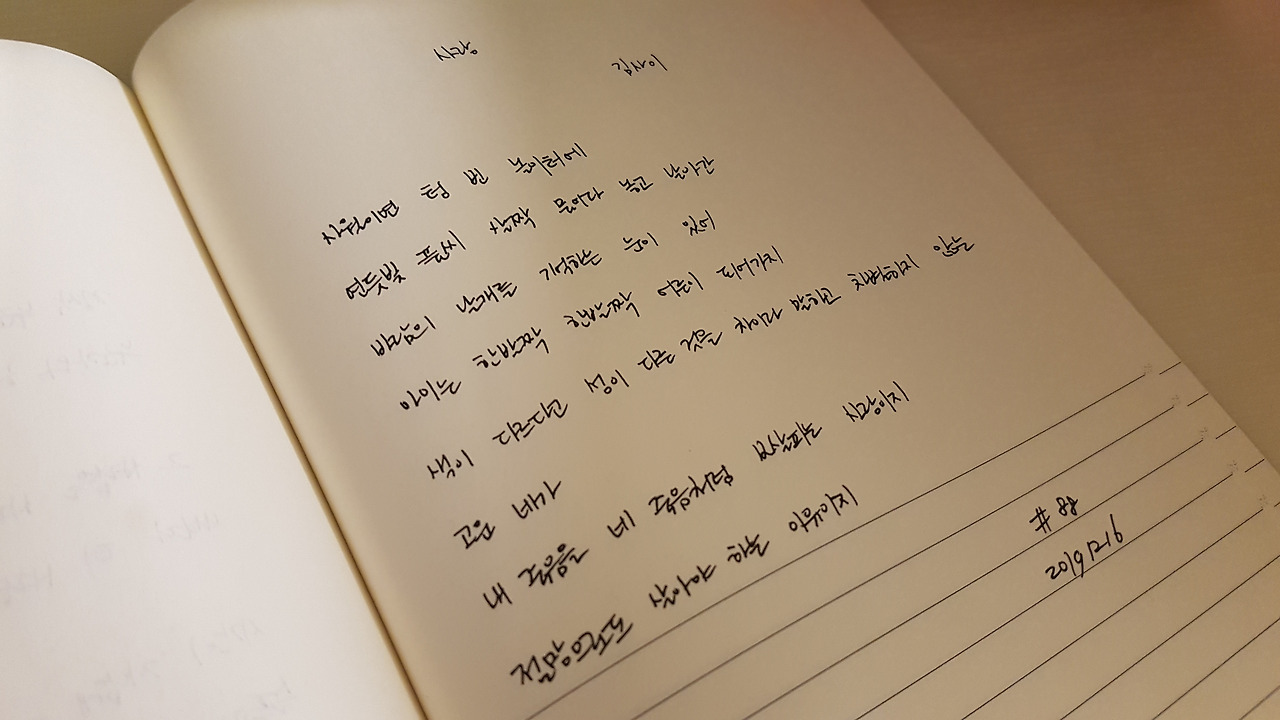 사랑
김사이
사월이면 텅 빈 놀이터에
연둣빛 풀씨 살짝 물어다 놓고 날아간
바람의 날개를 기억하는 눈이 있어
아이는 한발짝 한발짝 어른이 되어가지
색이 다르다고 성이 다른 것을 차이라 말하고 차별하지 않는
고운 네가
내 모음을 네 모음처럼 보살피는 사랑이지
절망도 살아야 하는 이유이지
#88
20191216